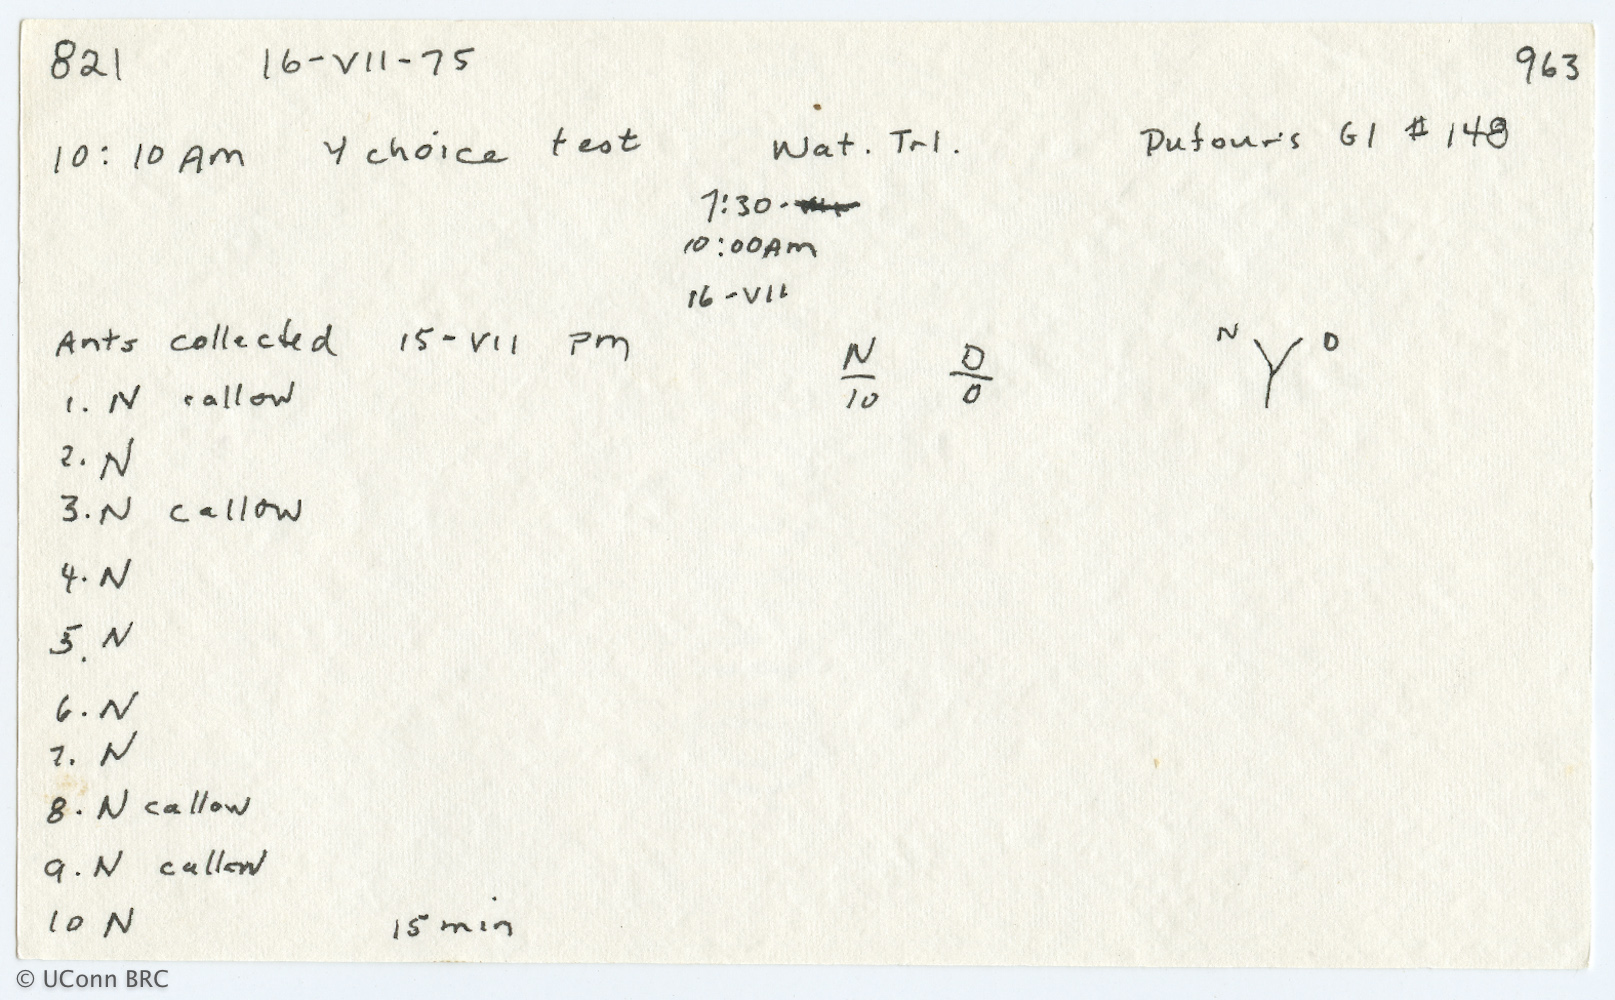 821 16-VII-75 963
10:10 Am Y choice test Nat. Trl. Dufour's Gl # 148
7:30 -
10:00 Am
16-VII
Ants collected 15-VII pm N D N D
10 0
1. N callow
2. N
3. N callow
4. N
5. N
6. N
7. N
8. N callow
9. N callow
10 N 15 min
© UConn BRC